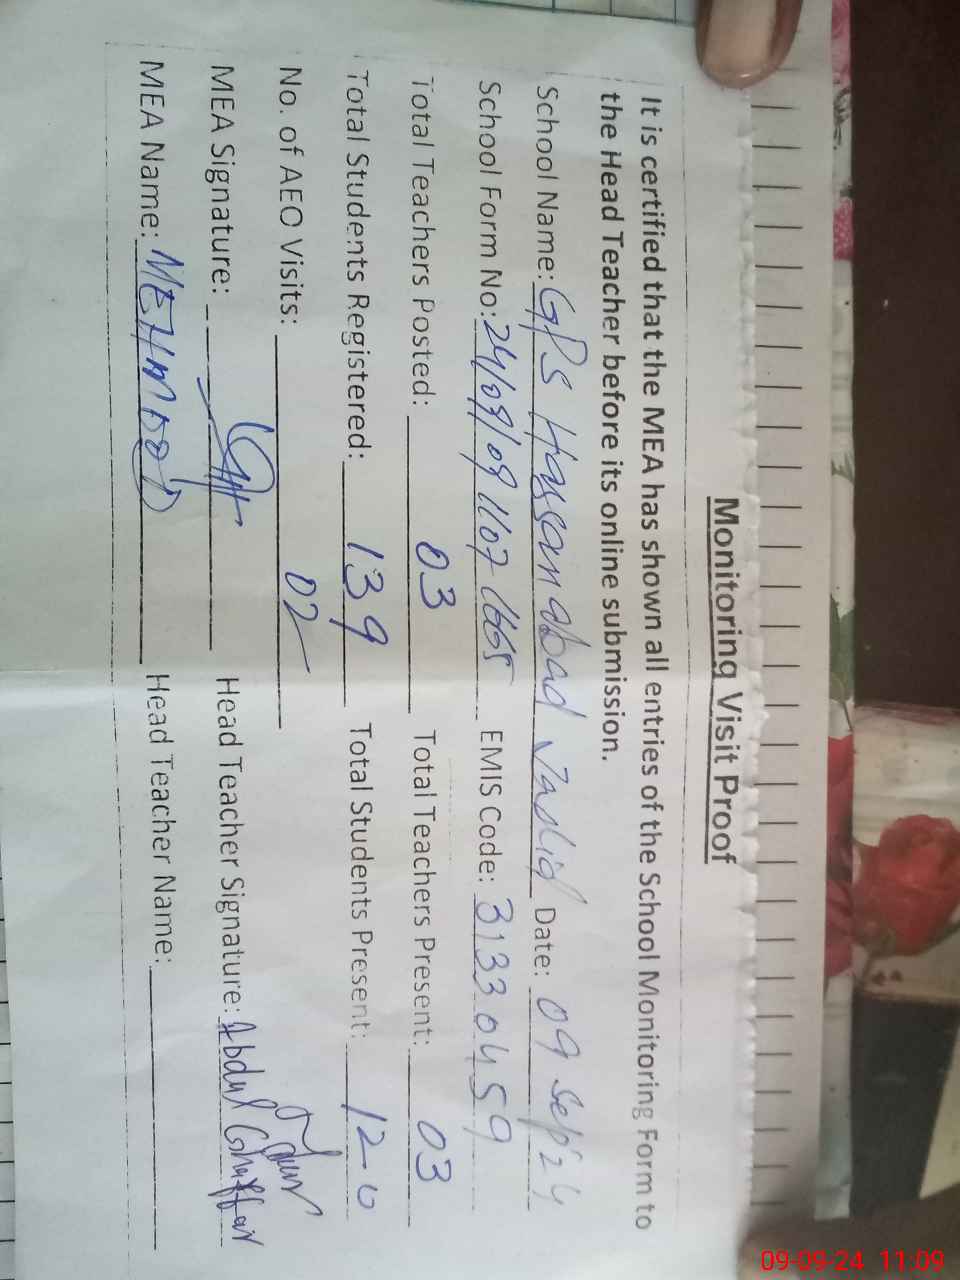 Monitoring Visit Proof
It is certified that the MEA has shown all entries of the School Monitoring Form to
the Head Teacher before its online submission.
School Name: GPS Hassan abad Date: 09 Sep 24
School Form No: 24/09/09 EMIS Code: 31330459
Total Teachers Posted: 03 Total Teachers Present: 03
Total Students Registered: 139 Total Students Present: 120
No. of AEO Visits: 02
MEA Signature: Head Teacher Signature: Abdul Ghaffar
MEA Name: MEHMOOD Head Teacher Name:
09-09-24 11:09